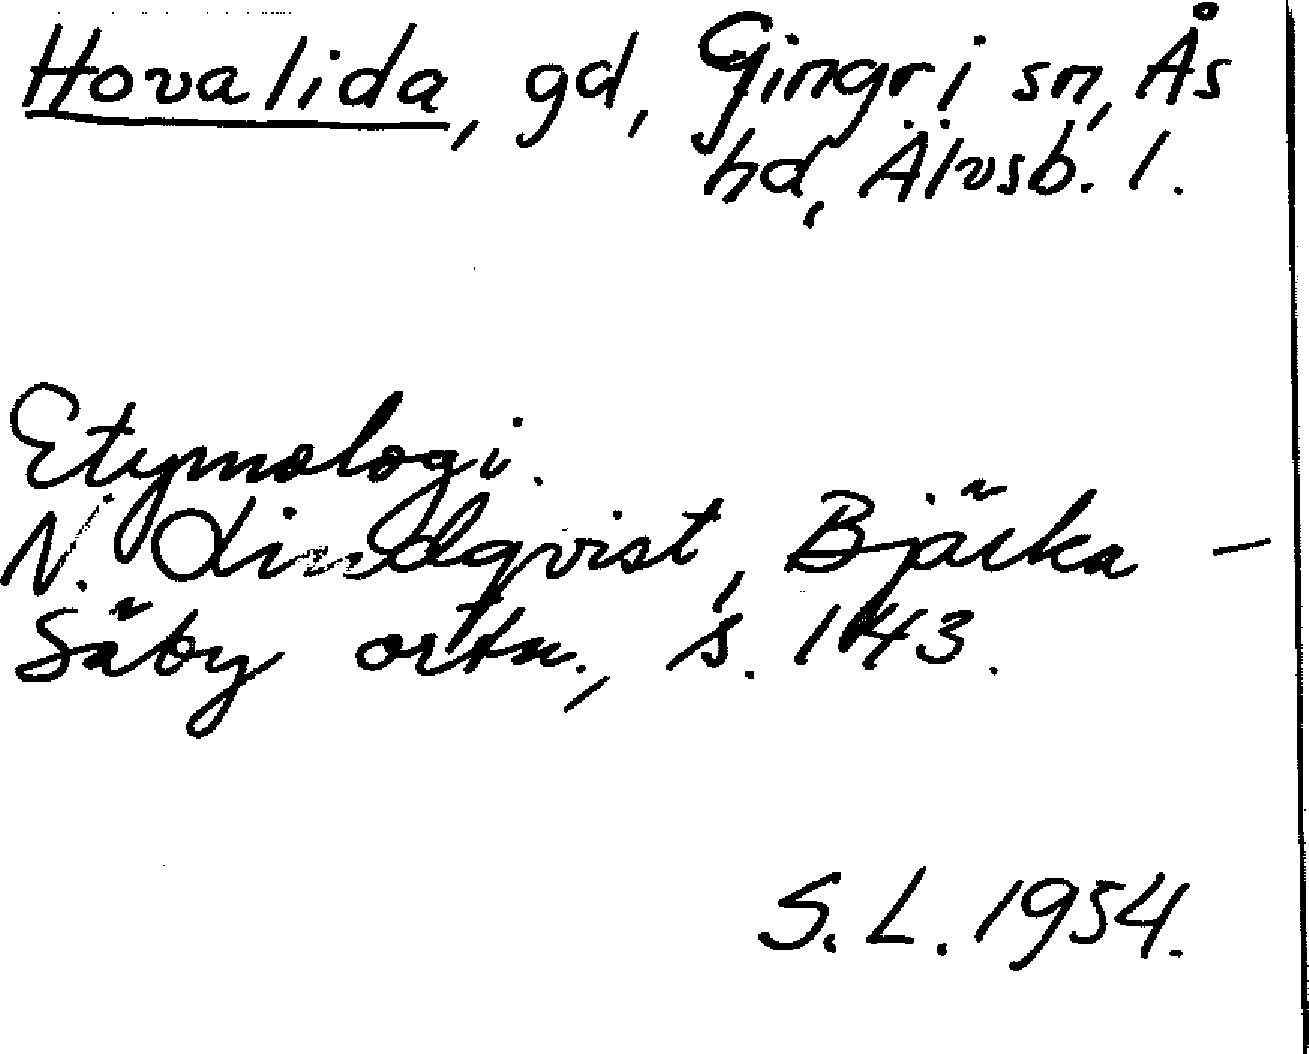 Hovalida, gd, Gingri sn, Ås
hd, Älvsb. l.
Etymologi.
N. Lindqvist, Bjärka -
Säby ortn., s. 143.
S. L. 1954.